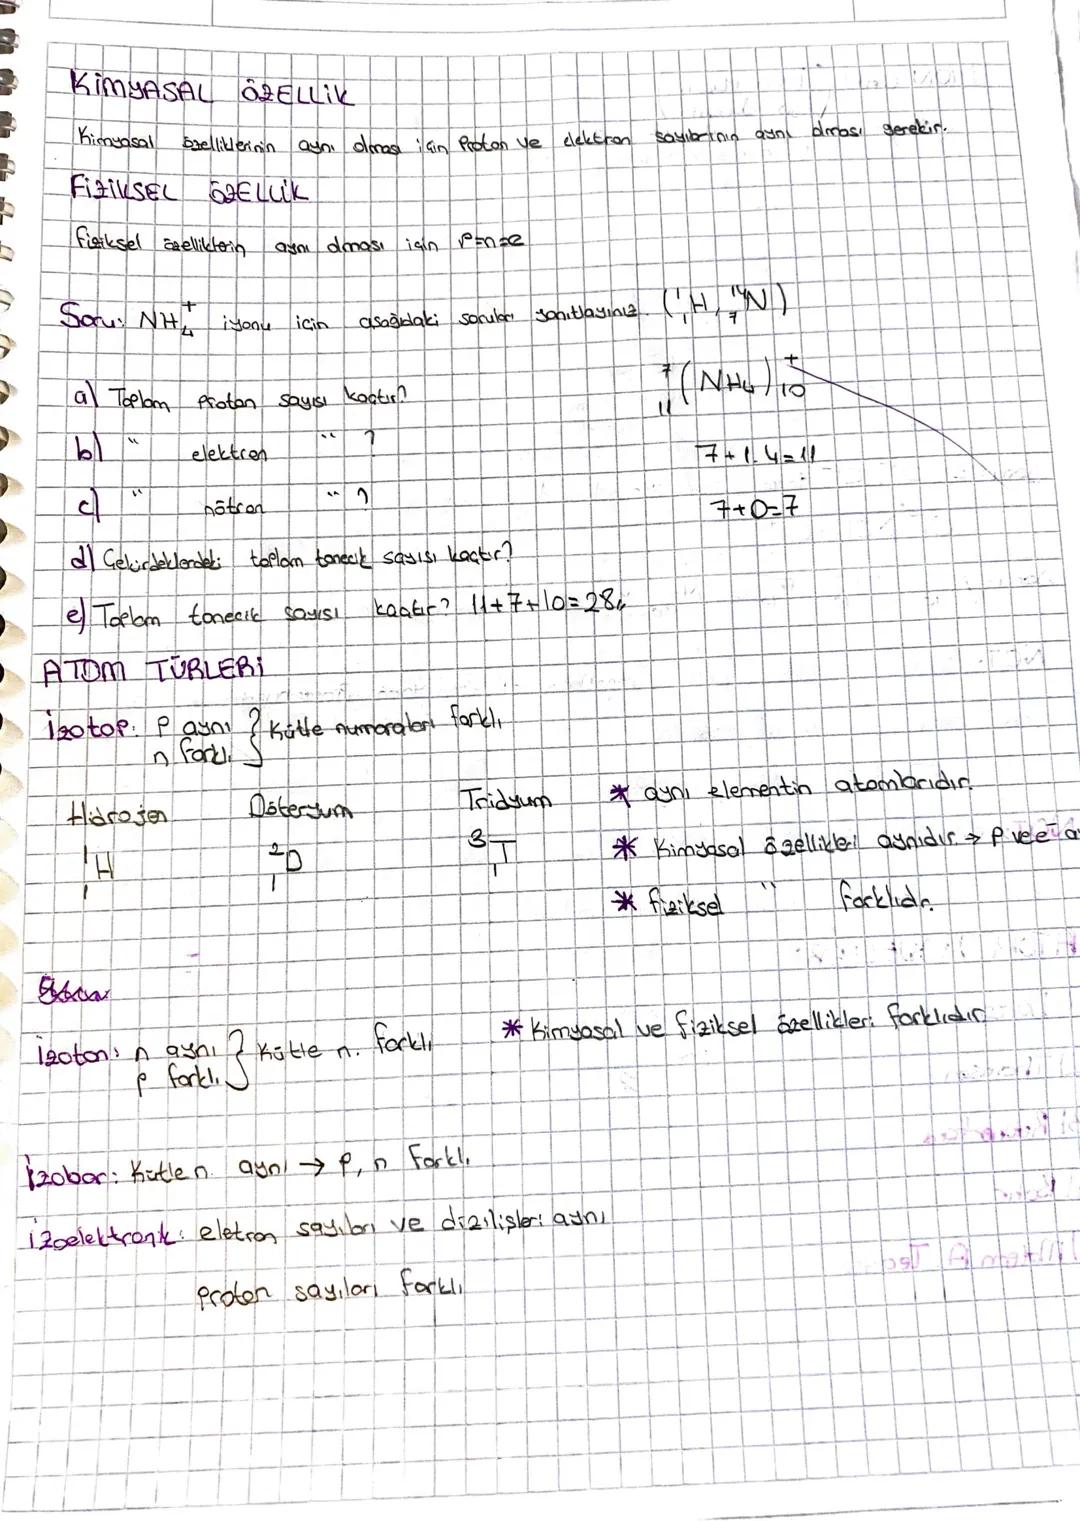 KİMYASAL ÖZELLİK
Kimyasal özelliklerinin aynı olması için Proton ve elektron sayılarının aynı olması gerekir.
FİZİKSEL ÖZELLİK
fiziksel özelliklerin aynı olması için P=n=e
Soru: NH₄⁺ iyonu için aşağıdaki soruları yanıtlayınız. (¹₁H, ¹⁴₇N)
⁷₁₁(NH₄)⁺₁₀
a) Toplam Proton sayısı kaçtır?
b) " elektron " ?
7+1.4=11
c) " nötron " ?
7+0=7
d) Çekirdeklerdeki toplam tanecik sayısı kaçtır?
e) Toplam tanecik sayısı kaçtır? 11+7+10=28
ATOM TÜRLERİ
izotop: P aynı } Kütle numaraları farklı
n farklı
Hidrojen Döteryum Tridyum * aynı elementin atomlarıdır.
¹₁H ²₁D ³₁T * Kimyasal özellikleri aynıdır. → P ve e⁻ a
* fiziksel " farklıdır.
izoton: n aynı } Kütle n. farklı * Kimyasal ve fiziksel özellikleri farklıdır
P farklı
İzobar: Kütle n. aynı → P, n farklı
izoelektronik: eletron sayıları ve dizilişleri aynı
proton sayıları farklı